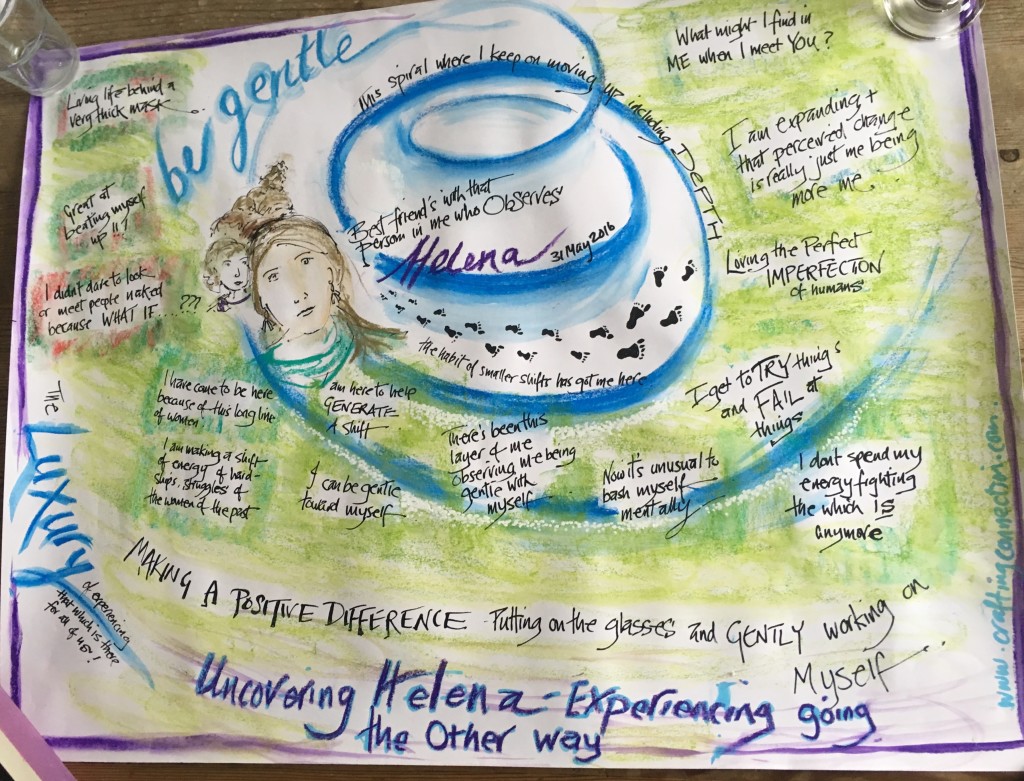 be gentle
This spiral where I keep on moving up including DEPTH
What might I find in
ME when I meet YOU?
Living life behind a
very thick MASK
I am expanding +
that perceived change
is really just me being
more me...
Great at
beating myself
up!!?
Best friend's with that
person in me who Observes
I
Helena 31 May 2016
Loving the Perfect
IMPERFECTION
of humans
I didn't dare to look
or meet people naked
because WHAT IF.....???
the habit of smaller shifts has got me here
I get to TRY things
and FAIL at
things
I have come to be here
because of this long line
of women.
am here to help
GENERATE
A Shift
I am making a shift
of energy of hard-
ships, struggles of
the women of the past
I can be gentle
toward myself
There's been this
layer of me
observing me being
gentle with
myself
Now it's unusual to
bash myself
mentally
I don't spend my
energy fighting
the which IS
anymore
The Luxury
of experiencing
that which is there
for all of us!
MAKING A POSITIVE DIFFERENCE - Putting on the glasses and GENTLY working on
Myself...
Uncovering Helena - Experiencing going
the Other way
www.craftingconnection.com